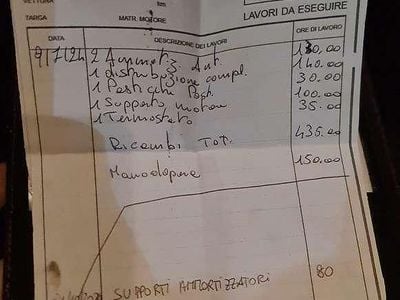 VETTURA
TARGA MATR. MOTORE LAVORI DA ESEGUIRE
DATA DESCRIZIONE DEI LAVORI ORE DI LAVORO
9/7/24 2 Ammortiz. Ant. 130.00
1 distribuzione compl. 140.00
1 Pasticche Post. 30.00
1 Supporto motore 100.00
1 Termostato 35.00
Ricambi TOT. 435.00
Manodopera 150.00
SUPPORTI AMMORTIZZATORI 80